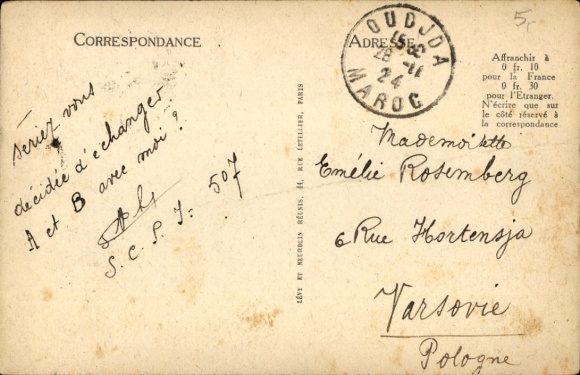 CORRESPONDANCE
ADRESSE
OUDJDA
MAROC
15 30
28 -11
24
5,
Affranchir à
0 fr. 10
pour la France
0 fr. 30
pour l'Etranger.
N'écrire que sur
le côté réservé à
la correspondance
seriez vous
décidée d'échanger
A et B avec moi ?
S.C.P.I= 507
LÉVY ET NEURDEIN RÉUNIS, 44, RUE LETELLIER, PARIS
Mademoiselle
Emélie Rosemberg
6 Rue Hortensja
Varsovie
Pologne